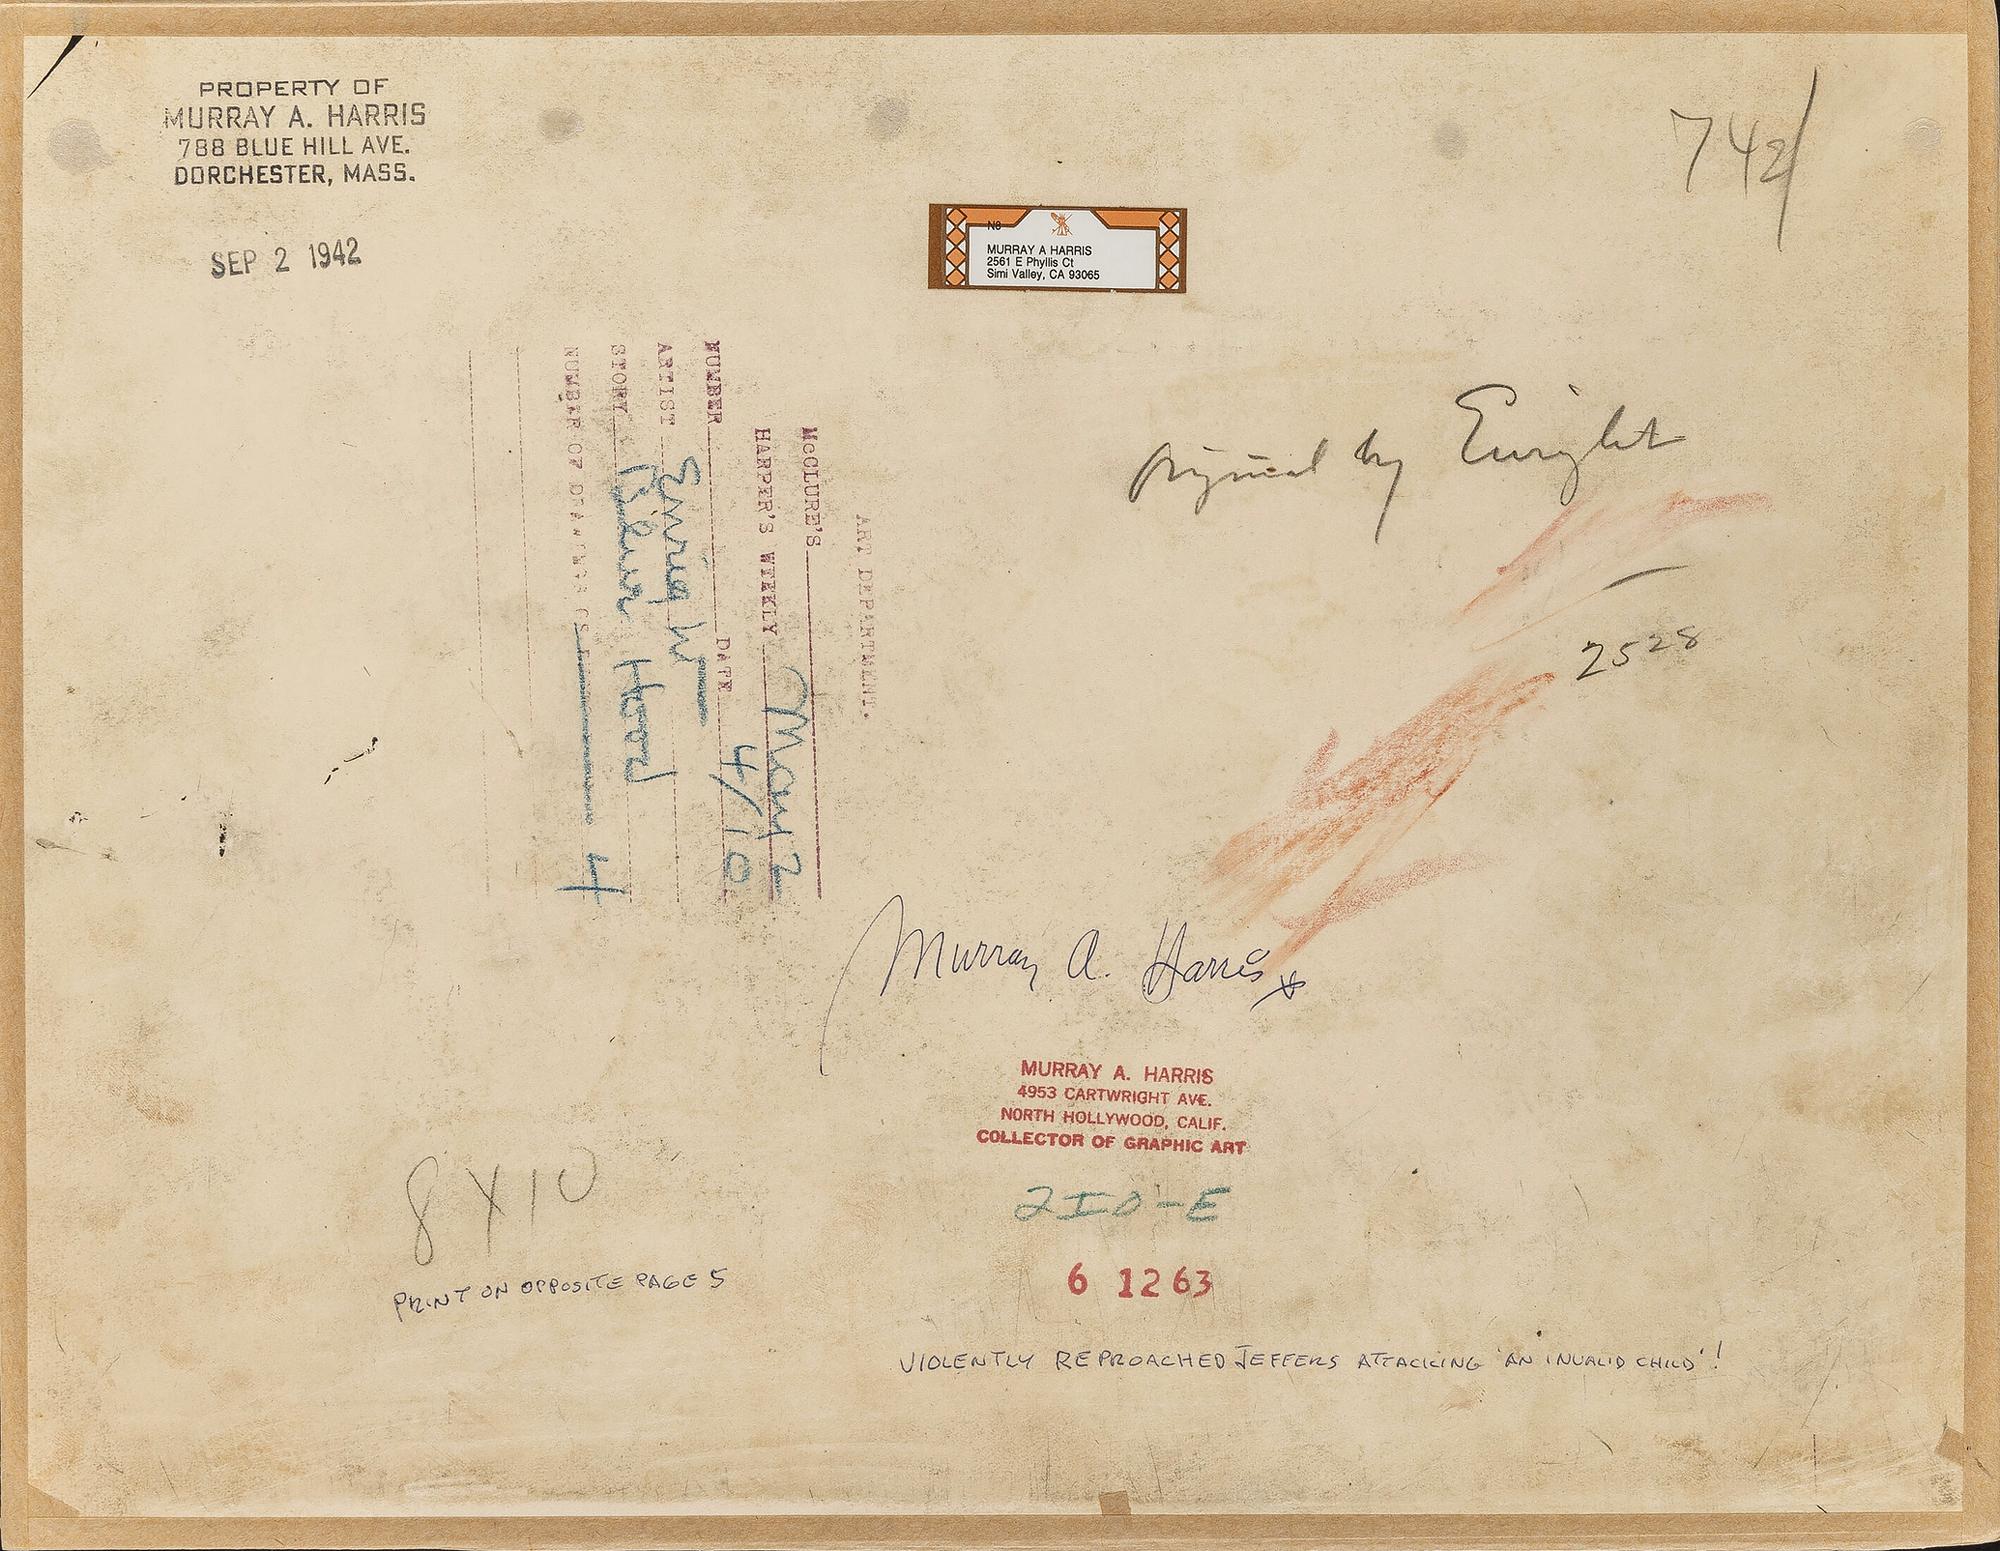 PROPERTY OF
MURRAY A. HARRIS
788 BLUE HILL AVE.
DORCHESTER, MASS.
SEP 2 1942
742/
N8
MURRAY A HARRIS
2561 E Phyllis Ct
Simi Valley, CA 93065
by Enright
2528
ART DEPARTMENT.
McCLURE'S
HARPER'S WEEKLY May 2
NUMBER DATE 4/10
ARTIST Enright
STORY Hood
NUMBER OF DRAWINGS 4
Murray A. Harris
MURRAY A. HARRIS
4953 CARTWRIGHT AVE.
NORTH HOLLYWOOD, CALIF.
COLLECTOR OF GRAPHIC ART
210-E
6 12 63
8 X 10
PRINT ON OPPOSITE PAGE 5
VIOLENTLY REPROACHED JEFFERS ATTACKING 'AN INVALID CHILD'!